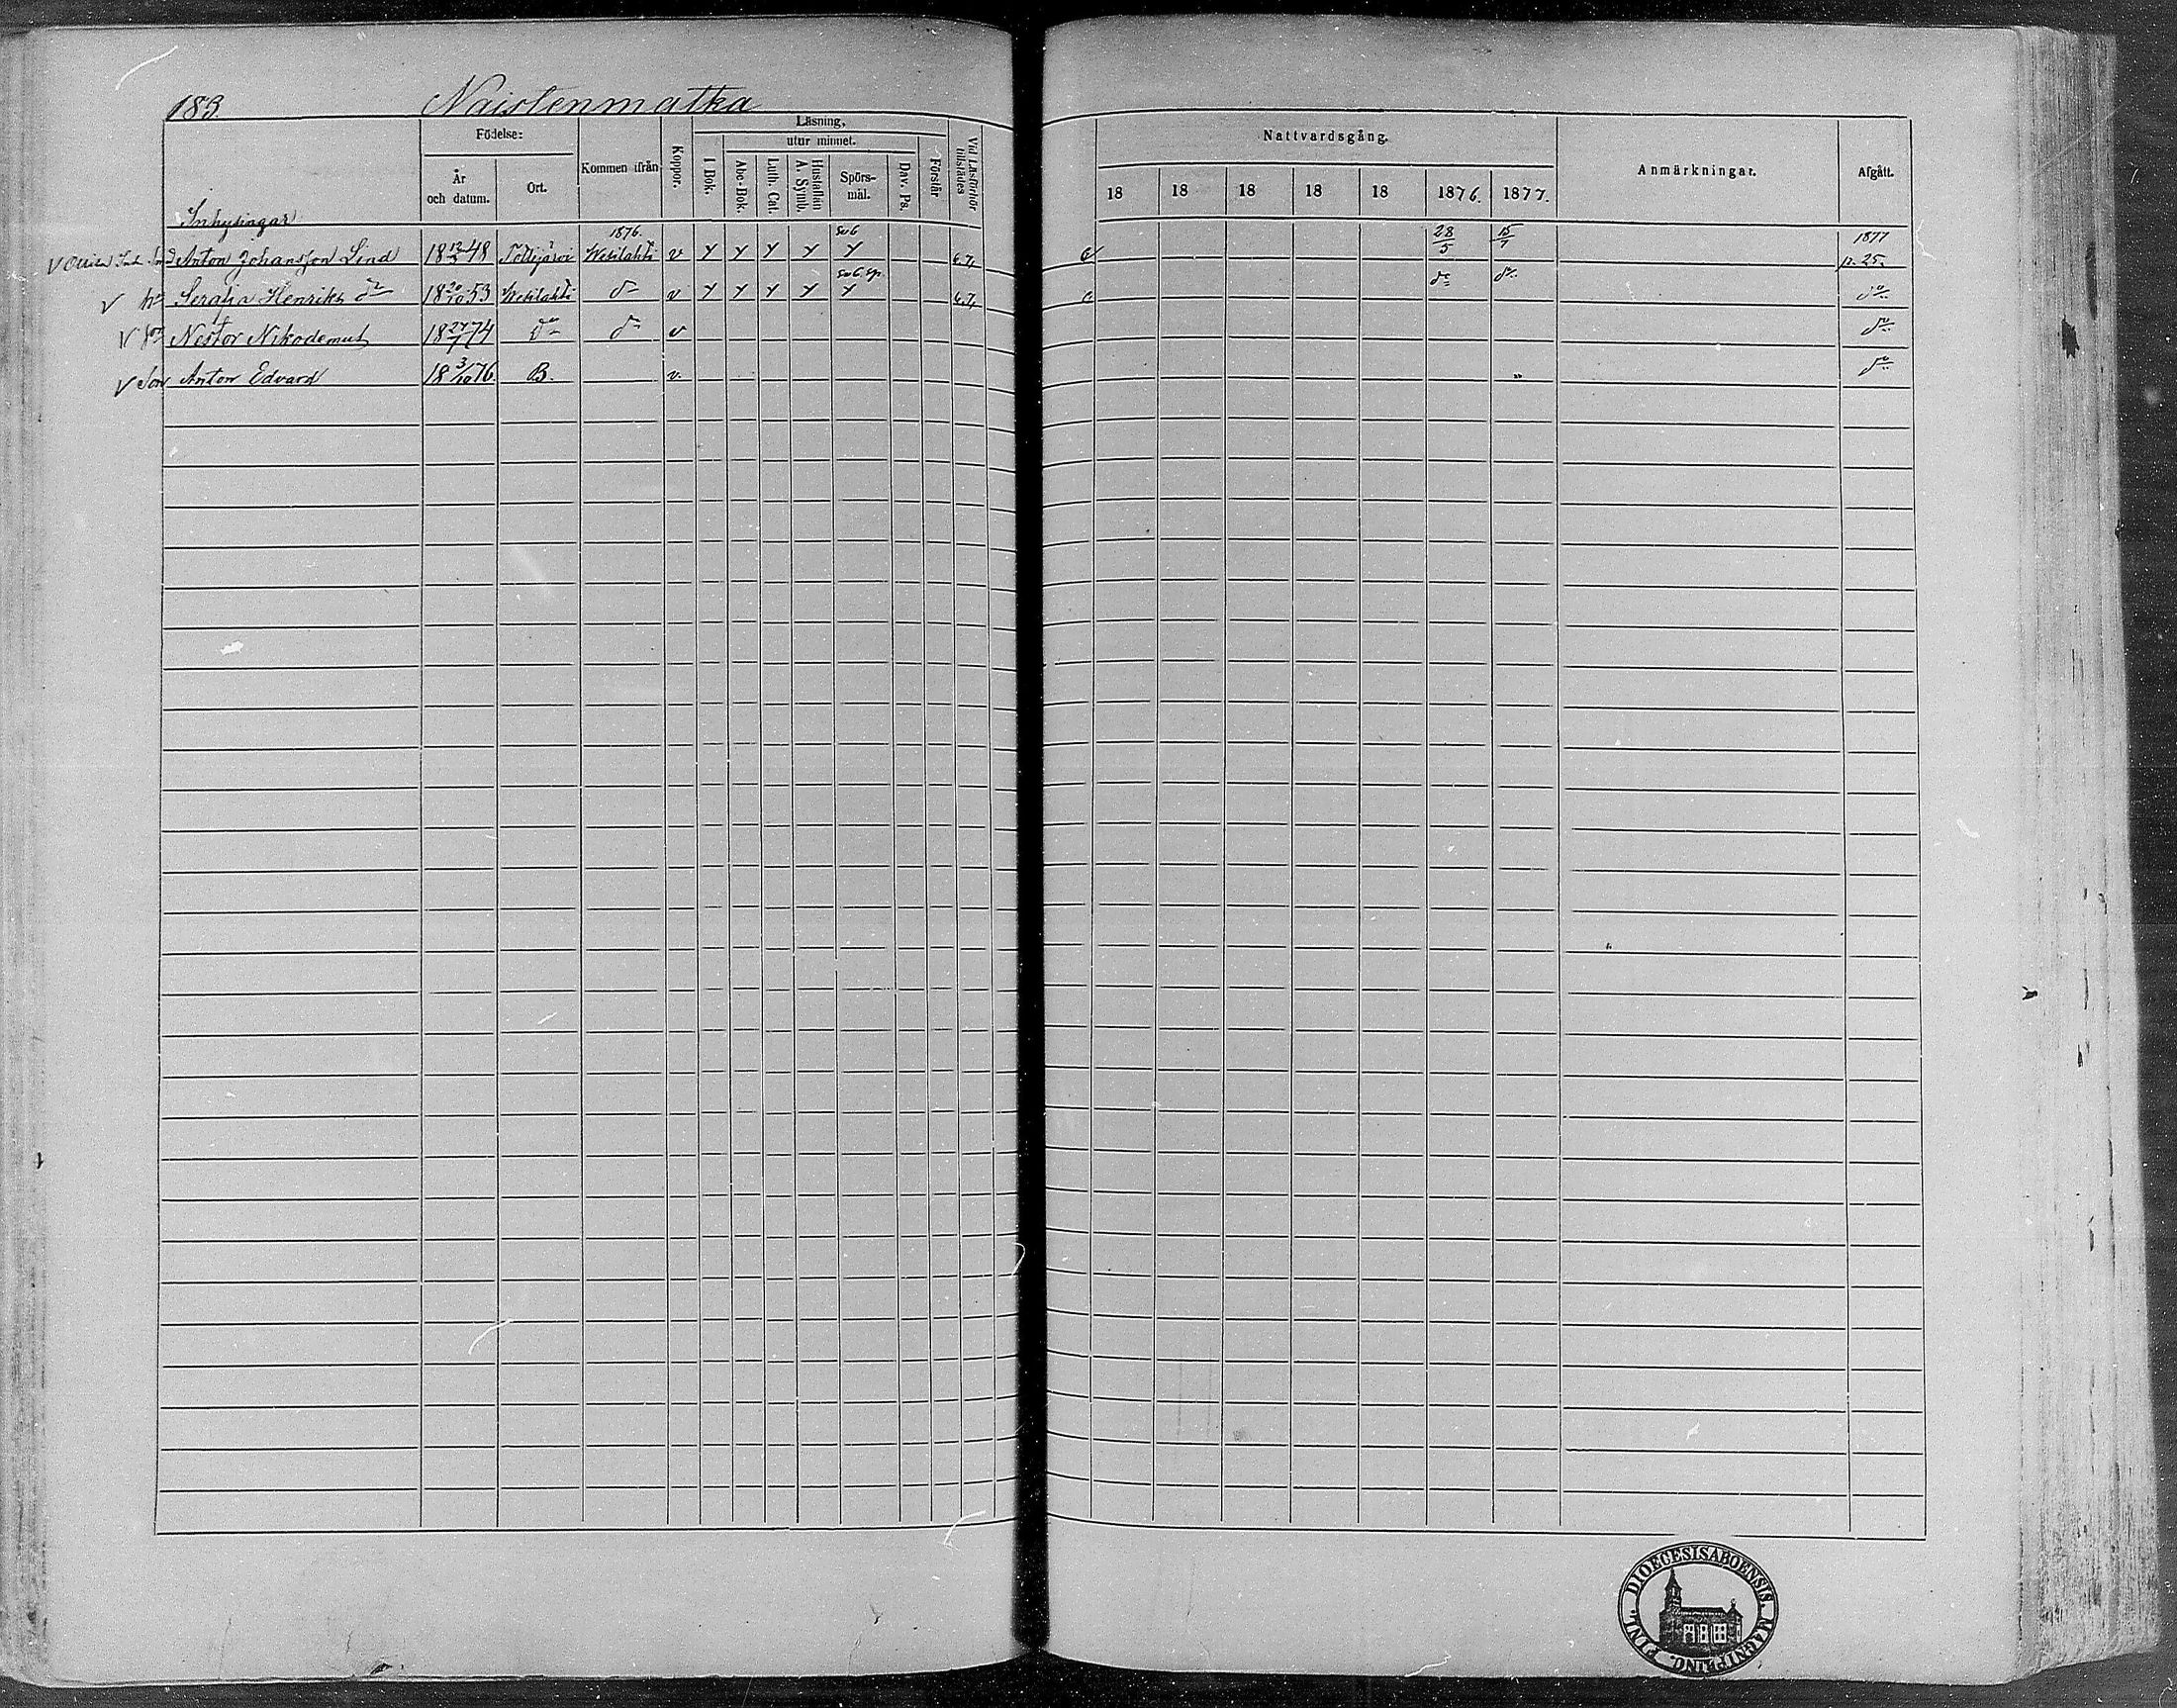 183.
Naistenmatka
Födelse:
År
och datum.
Ort.
Kommen ifrån
Koppor.
Läsning,
utur minnet.
I Bok.
Abc-Bok.
Luth. Cat.
Hustaflan
A. Symb.
Spörs-
mål.
Dav. Ps.
Förstår
Vid Läsförhör
tillstädes
Nattvardsgång.
18 18 18 18 18 1876. 1877.
Anmärkningar.
Afgått.
Inhysingar
Anton Johansson Lind 18 12/2 48 1876. Wesilahti v 6.7. 28/5 15/7 1877 p. 25.
v Serafia Henriks dr 18 20/10 53 Wesilahti do v 6.7. do do do
v Nestor Nikodemus 18 27/7 74 do do v do
v Son Anton Edvard 18 3/10 76. B. v. do
FINL. DIOECESIS ABOENSIS. MAGNI PRINC.